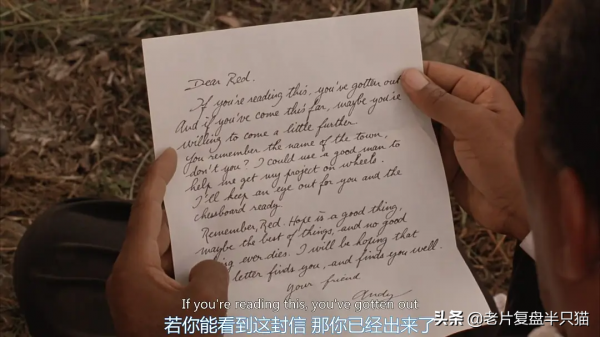 Dear Red.
If you're reading this, you've gotten out
And if you've come this far, maybe you're
willing to come a little further.
You remember the name of the town,
don't you? I could use a good man to
help me get my project on wheels.
I'll keep an eye out for you and the
chessboard ready.
Remember, Red. Hope is a good thing,
maybe the best of things, and no good
ever dies. I will be hoping that
letter finds you, and finds you well.
Your friend
Andy
If you're reading this, you've gotten out
若你能看到这封信 那你已经出来了
头条 @老片复盘半只猫